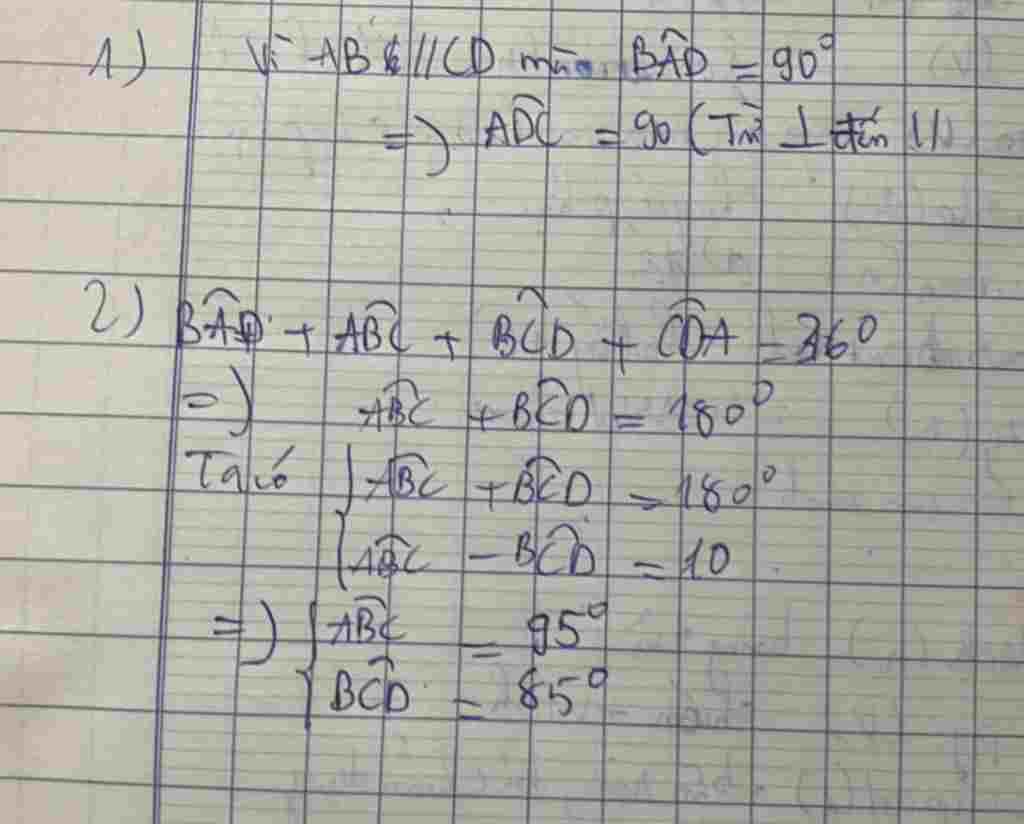 1) Vì AB // CD mà BAD = 90°
=> ADC = 90 (Từ ⊥ đến //)
2) BAD + ABC + BCD + CDA = 360
=> ABC + BCD = 180°
Ta có { ABC + BCD = 180°
{ ABC - BCD = 10
=> { ABC = 95°
{ BCD = 85°